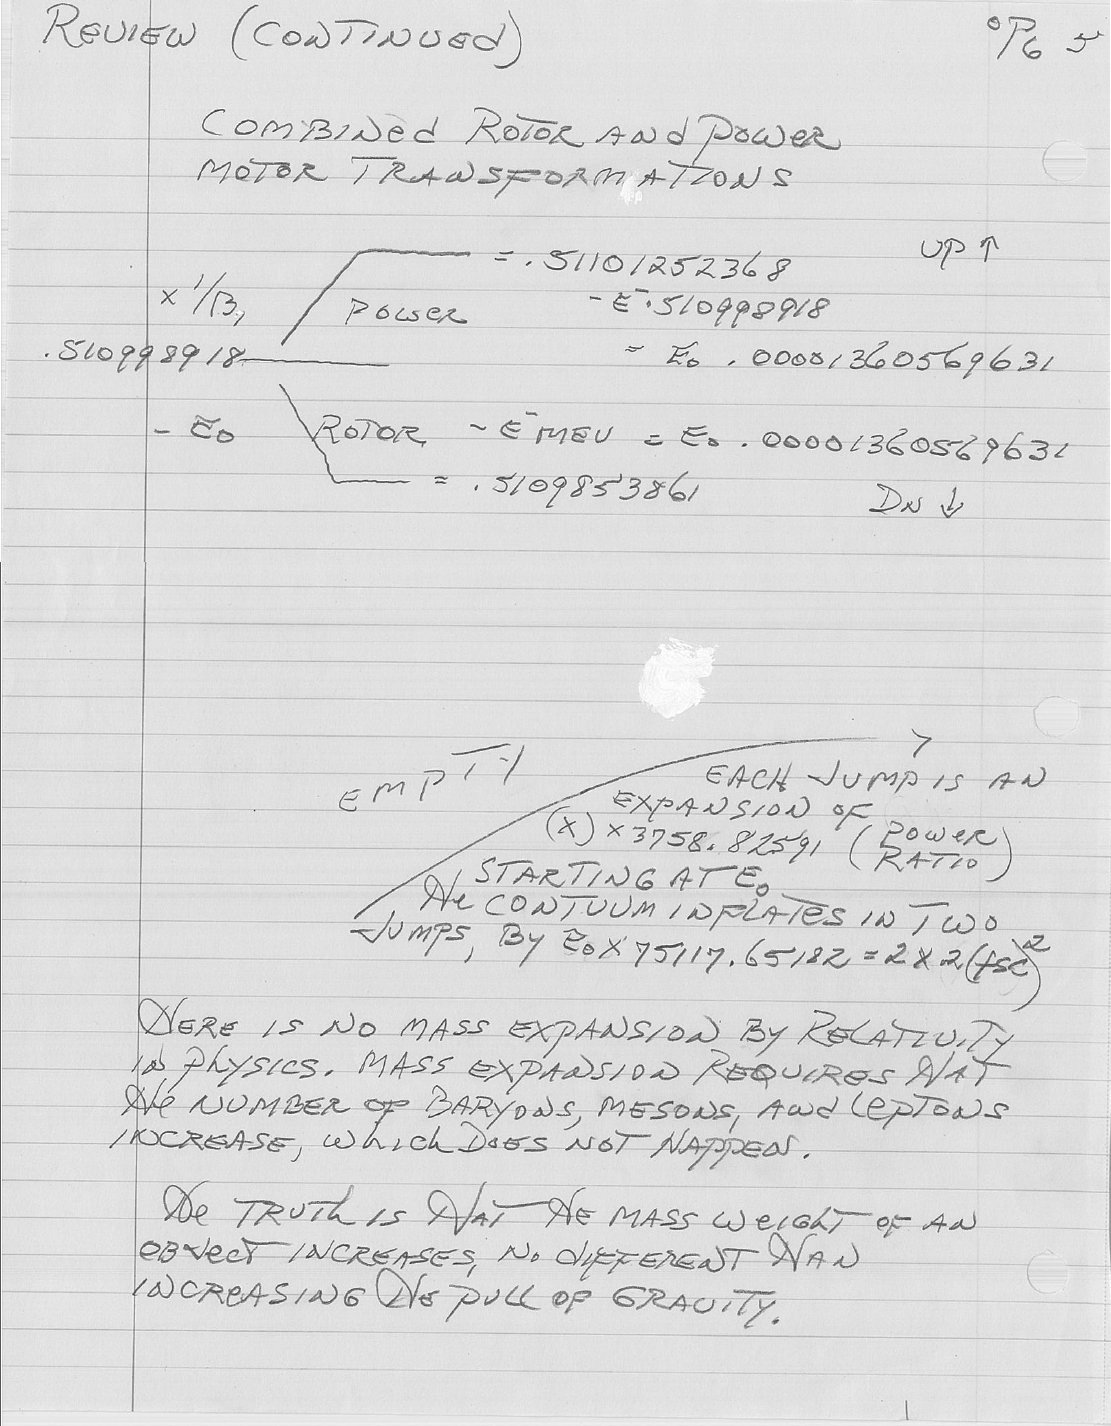 REVIEW (CONTINUED)
°PG 5
COMBINED ROTOR AND POWER
MOTOR TRANSFORMATIONS
= .51101252368
UP ↑
x 1/B,
POWER
- E⁻.510998918
.510998918
= E₀ .00001360569631
- E₀
ROTOR - E⁻ MEV = E₀ .00001360569631
= .5109853861
DN ↓
EMPTY
EACH JUMP IS AN
EXPANSION OF
(X) x 3758.82591 (POWER RATIO)
STARTING AT E₀
THE CONTUUM INFLATES IN TWO
JUMPS, BY E₀ X 75117.65182 = 2 X 2(fsc)²
THERE IS NO MASS EXPANSION BY RELATIVITY
IN PHYSICS. MASS EXPANSION REQUIRES THAT
THE NUMBER OF BARYONS, MESONS, AND LEPTONS
INCREASE, WHICH DOES NOT HAPPEN.
THE TRUTH IS THAT THE MASS WEIGHT OF AN
OBJECT INCREASES, NO DIFFERENT THAN
INCREASING THE PULL OF GRAVITY.